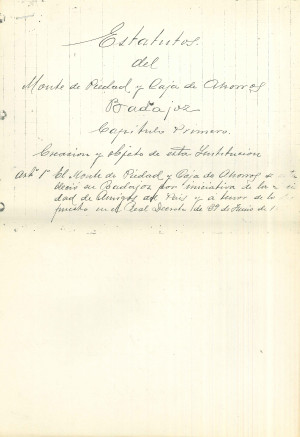 Estatutos.
del
Monte de Piedad y Caja de Ahorros
Badajoz
Capitulo Primero.
Creacion y objeto de esta Institucion
Artº 1º El Monte de Piedad y Caja de Ahorros se
en Badajoz por iniciativa de la
dad de Amigos del Pais y a tenor de lo
puesto en el Real Decreto de 29 de Junio de 1